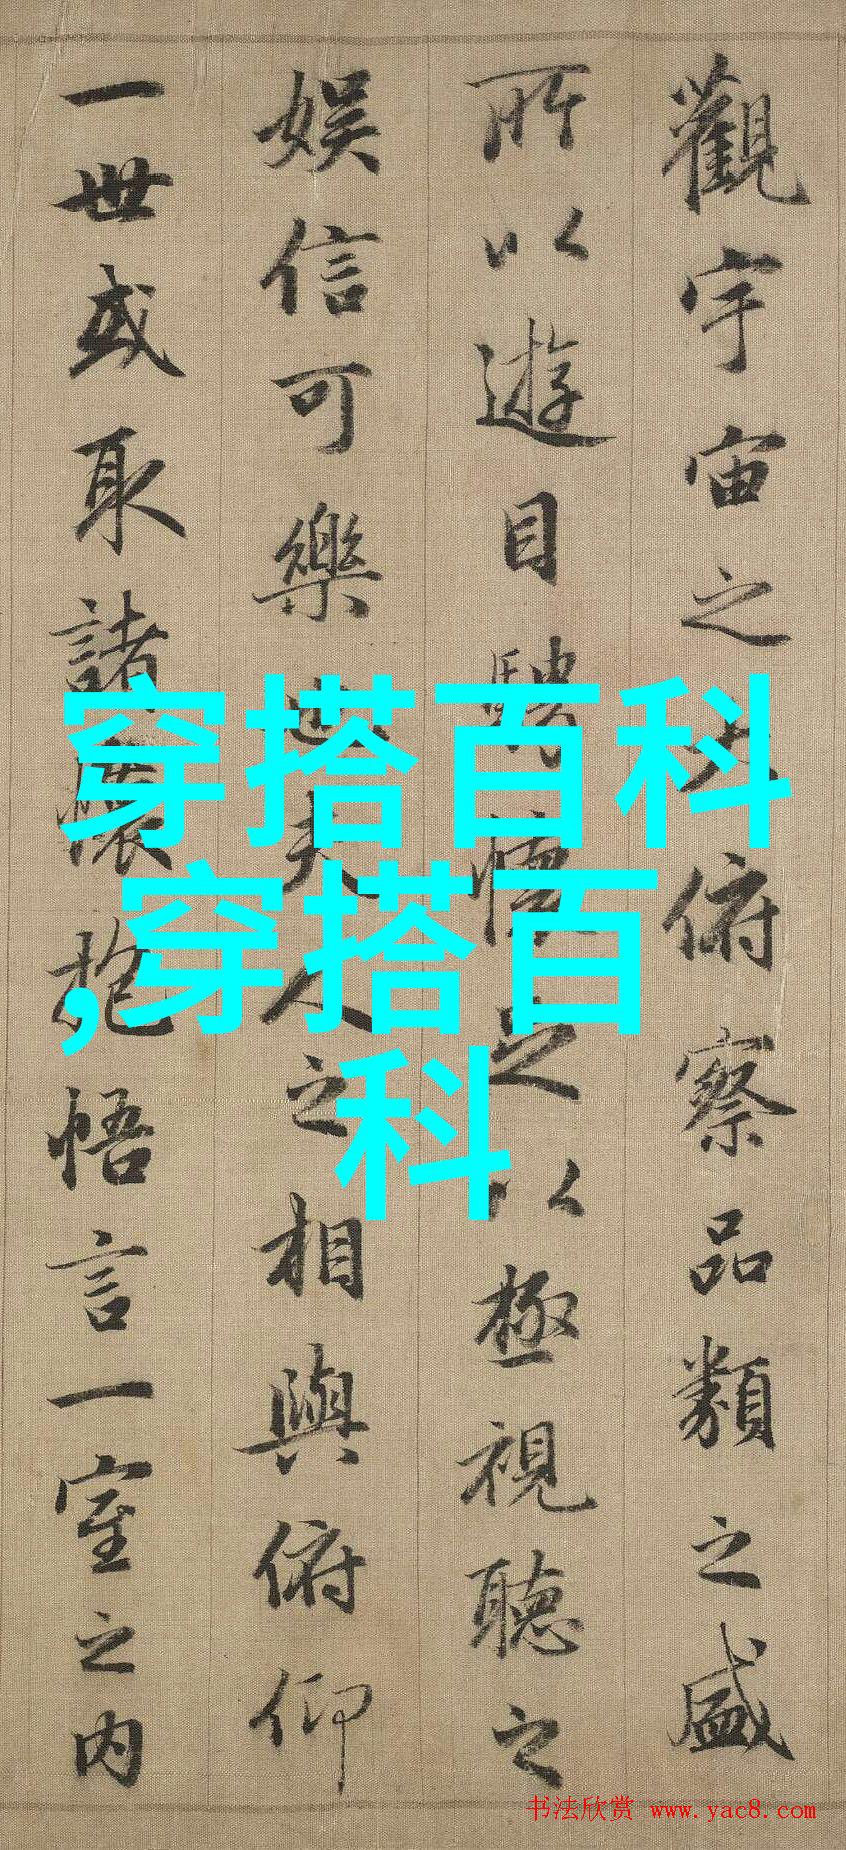 觀宇宙之大俯察品類之盛
所以遊目騁懷足以極視聽之
娛信可樂也夫人之相與俯仰
一世或取諸懷抱悟言一室之內
穿搭百科
,穿搭百
科
书法欣赏 www.yac8.com